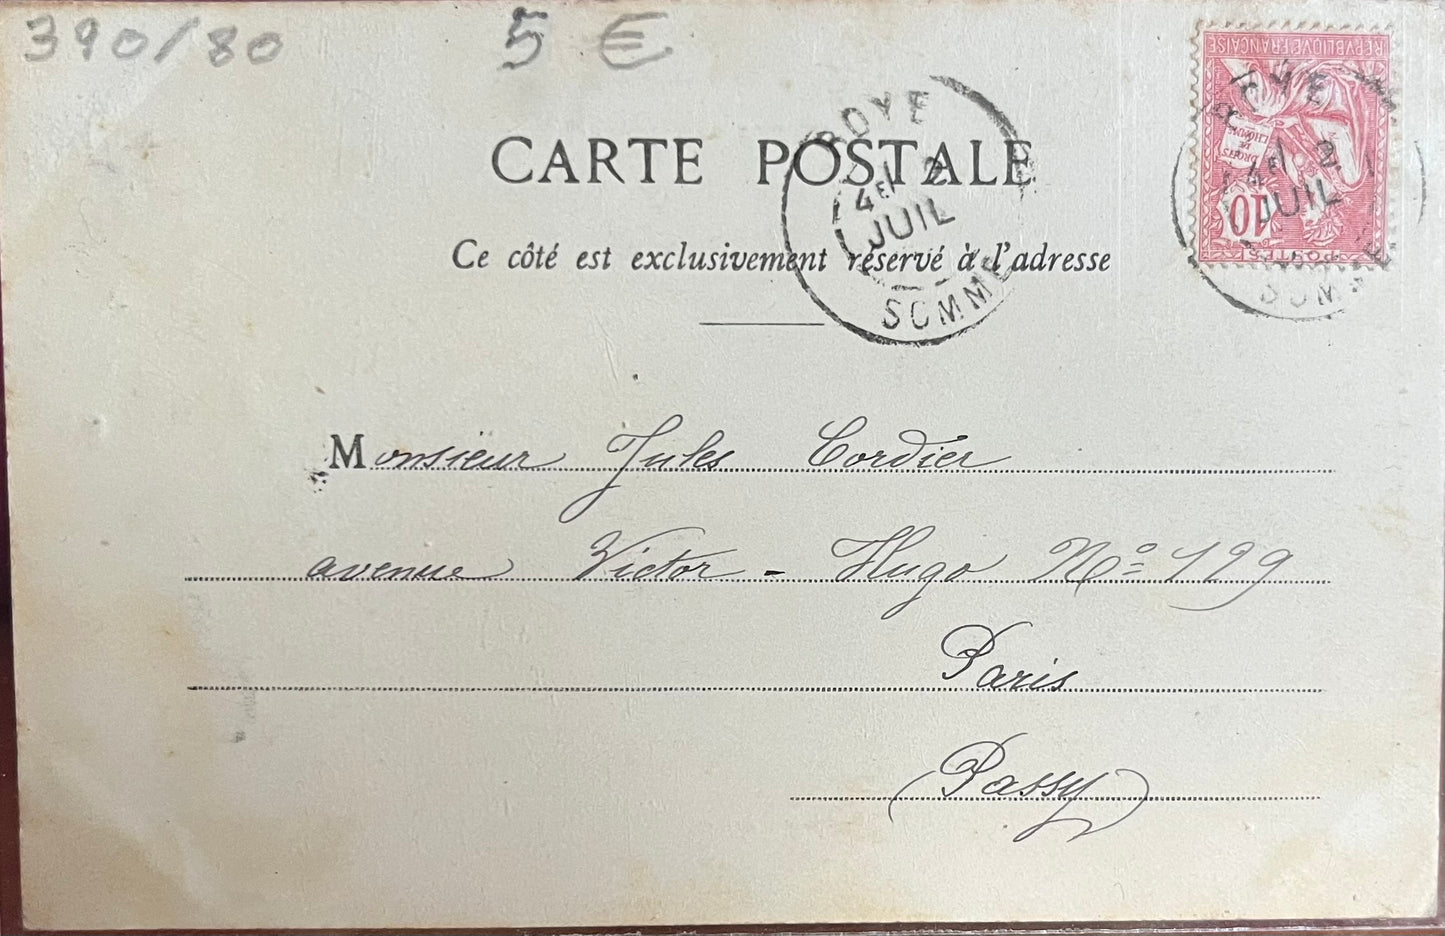 390/80 5 €
CARTE POSTALE
Ce côté est exclusivement réservé à l'adresse
ROYE
4E 2
JUIL
SOMME
REPVBLIQVE FRANÇAISE
DROITS
DE
L'HOMME
10
POSTES
OYE
4E 2
JUIL
SOMME
Monsieur Jules Cordier
avenue Victor-Hugo No 129
Paris
(Passy)